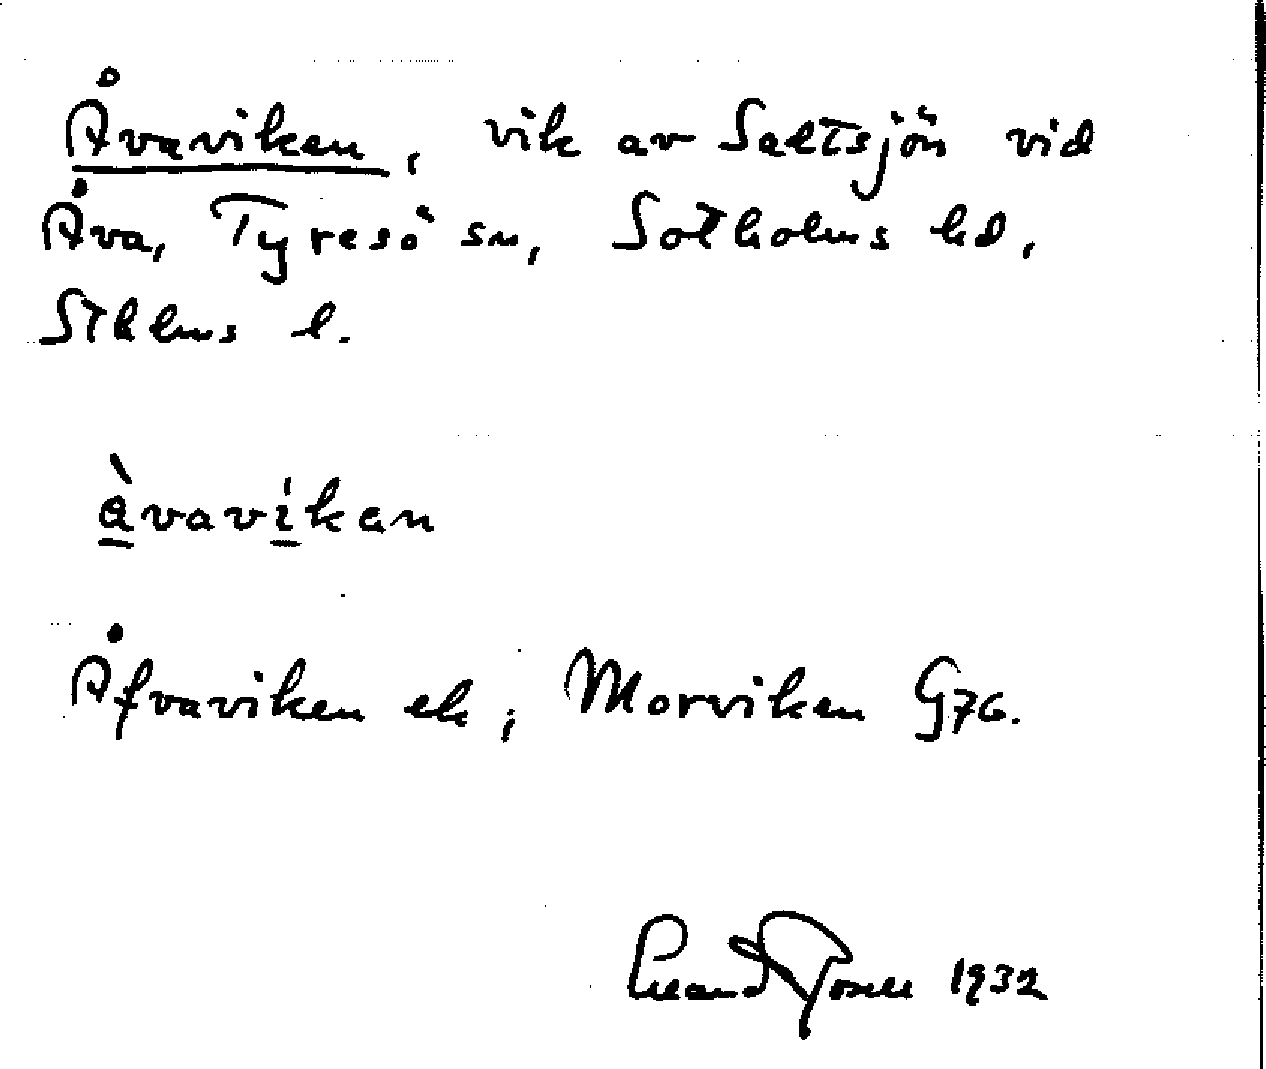 Åvaviken, vik av Saltsjön vid
Åva, Tyresö sn, Sotholms hd,
Sthlms l.
àvavíkan
Åfvaviken ek; Morviken G76.
Erland Rosell 1932